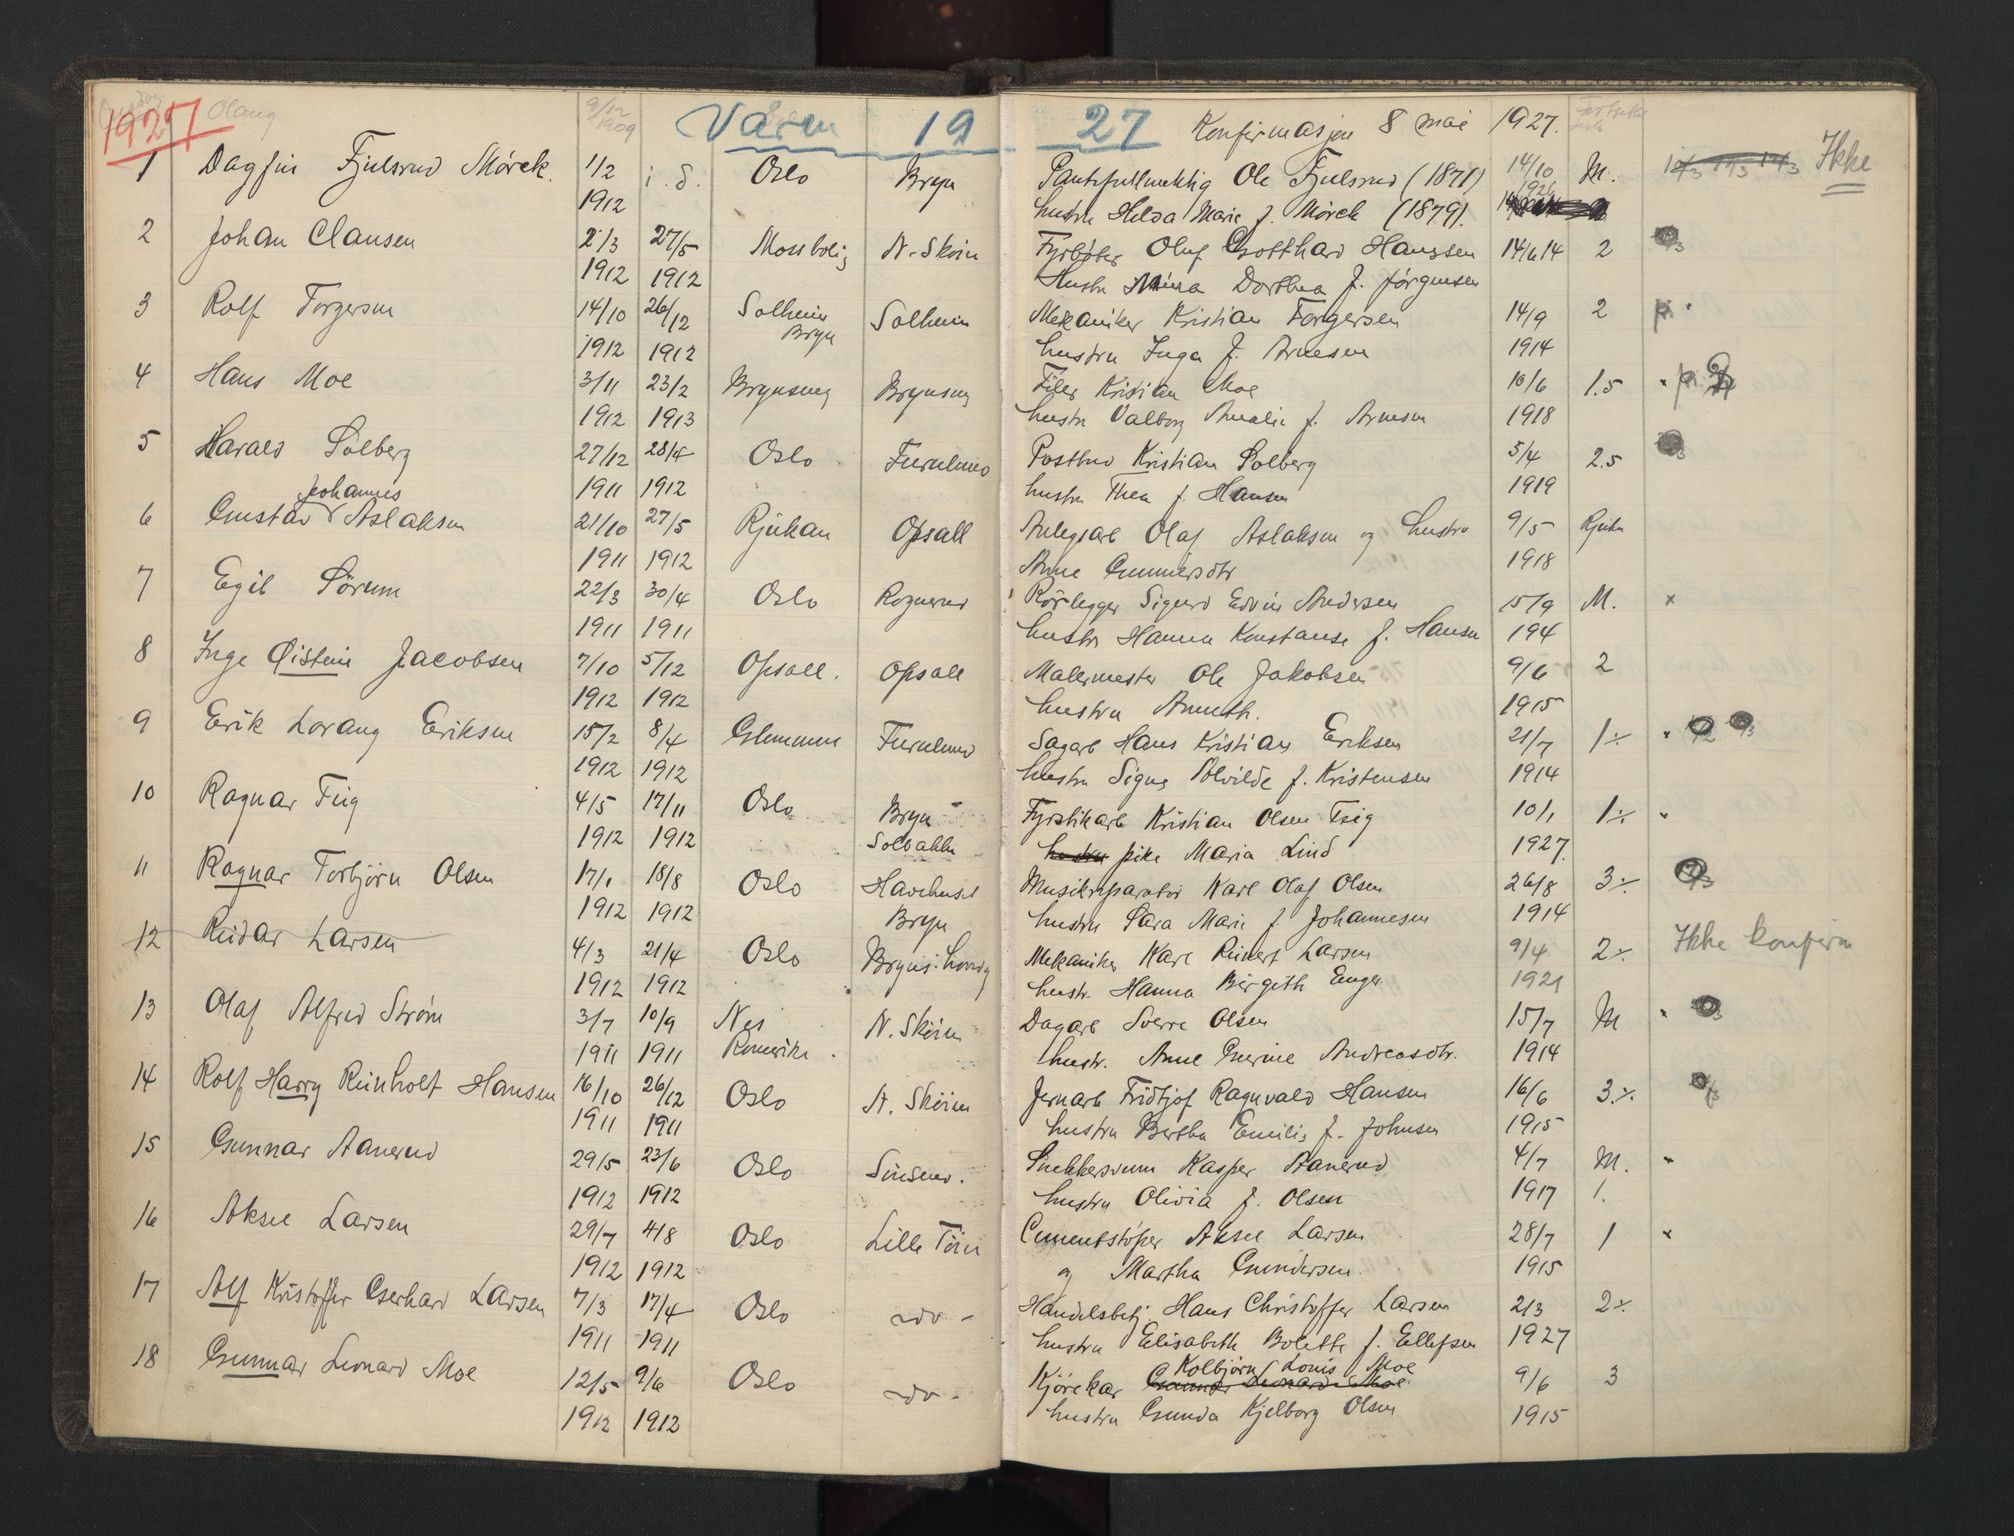 1927 Olaug 9/12 1909 Våren 1927 Konfirmasjon 8 mai 1927.
1 Dagfin Fjulsrud Mörck. 1/2 i. d. Oslo Bryn Pantefullmektig Ole Fjulsrud (1871) 14/10 M. Ikke
1912 hustru Helda Marie f. Mörck (1879). 1926
2 Johan Clausen 2/3 27/5 Mossbolig N. Skøien Fyrbøter Oluf Gotthard Hanssen 14/6 14 2
1912 1912 Hustru Mina Dorthea f. Jørgensen
3 Rolf Torgersen 14/10 26/12 Solheim Bryn Solheim Mekaniker Kristian Torgersen 14/9 2
1912 1912 hustru Inga f. Arnesen 1914
4 Hans Moe 3/11 23/2 Brynseng Brynseng Filer Kristian Moe 10/6 1.5
1912 1913 hustru Valborg Amalie f. Arnesen 1918
5 Harald Solberg 27/12 28/4 Oslo Furulund Postbud Kristian Solberg 5/4 2.5
1911 1912 hustru Thea f. Hansen 1919
6 Gustav Johannes Aslaksen 21/10 27/5 Rjukan Opsall Anlegsarb Olaf Aslaksen og hustru 9/5 Rjukn
1911 1912 Anne Gunnersdtr 1918
7 Egil Sörum 22/3 30/4 Oslo Rognerud Rörlegger Sigurd Edvin Andersen 15/9 M. x
1911 1911 hustru Hanna Konstanse f. Hansen 194
8 Inge Øistein Jacobsen 7/10 5/12 Opsall. Opsall Malermester Ole Jakobsen 9/6 2
1912 1912 hustru Anneth. 1915
9 Erik Lorang Eriksen 15/2 8/4 Glemmen Furulund Sagarb Hans Kristian Eriksen 21/7 1÷
1912 1912 hustru Signe Solvilde f. Kristensen 1914
10 Ragnar Feig 4/5 17/11 Oslo Bryn Fyrstikarb Kristian Olsen Feig 10/1 1÷
1912 1912 Solbakken hustru pike Maria Lind 1927.
11 Ragnar Torbjörn Olsen 17/1 18/8 Oslo Havehuset Musikreparatør Karl Olaf Olsen 26/8 3÷
1912 1912 Bryn hustru Sara Marie f Johannesen 1914
12 Reidar Larsen 4/3 21/4 Oslo Mekaniker Karl Reinert Larsen 9/4 2÷ Ikke konfirm
1912 1912 hustr. Hanna Birgith Enger 1921
13 Olaf Alfred Strøm 3/7 10/9 Nes N. Skøien Dagarb Sverre Olsen 15/7 M
1911 1911 Romerike. hustr. Anne Gurine Andreasdtr. 1914
14 Rolf Harry Reinholt Hansen 16/10 26/12 Oslo N. Skøien Jernarb Fridtjof Ragnvald Hansen 16/6 3÷
1911 1911 hustru Bertha Emilie f. Johnsen 1915
15 Gunnar Aanerud 29/5 23/6 Oslo Sinsen. Snekkersvenn Kasper Aanerud 4/7 M.
1912 1912 hustru Olivia f. Olsen 1917 1.
16 Aksel Larsen 29/7 4/8 Oslo Lille Töien Cementstöper Aksel Larsen 28/7 1 x
1912 1912 og Martha Gundersen. 1915
17 Alf Kristoffer Gerhard Larsen 7/3 17/4 Oslo - do - Handelsbetj Hans Christoffer Larsen 2/3 2÷
1911 1911 hustru Elisabeth Bolette f. Ellefsen 1927
18 Gunnar Leonard Moe 12/5 9/6 Oslo - do - Kjörekar Gunnar Leonard Moe Kolbjørn Louis Moe 9/6 3
1912 1912 hustru Gunda Kjelborg Olsen 1915